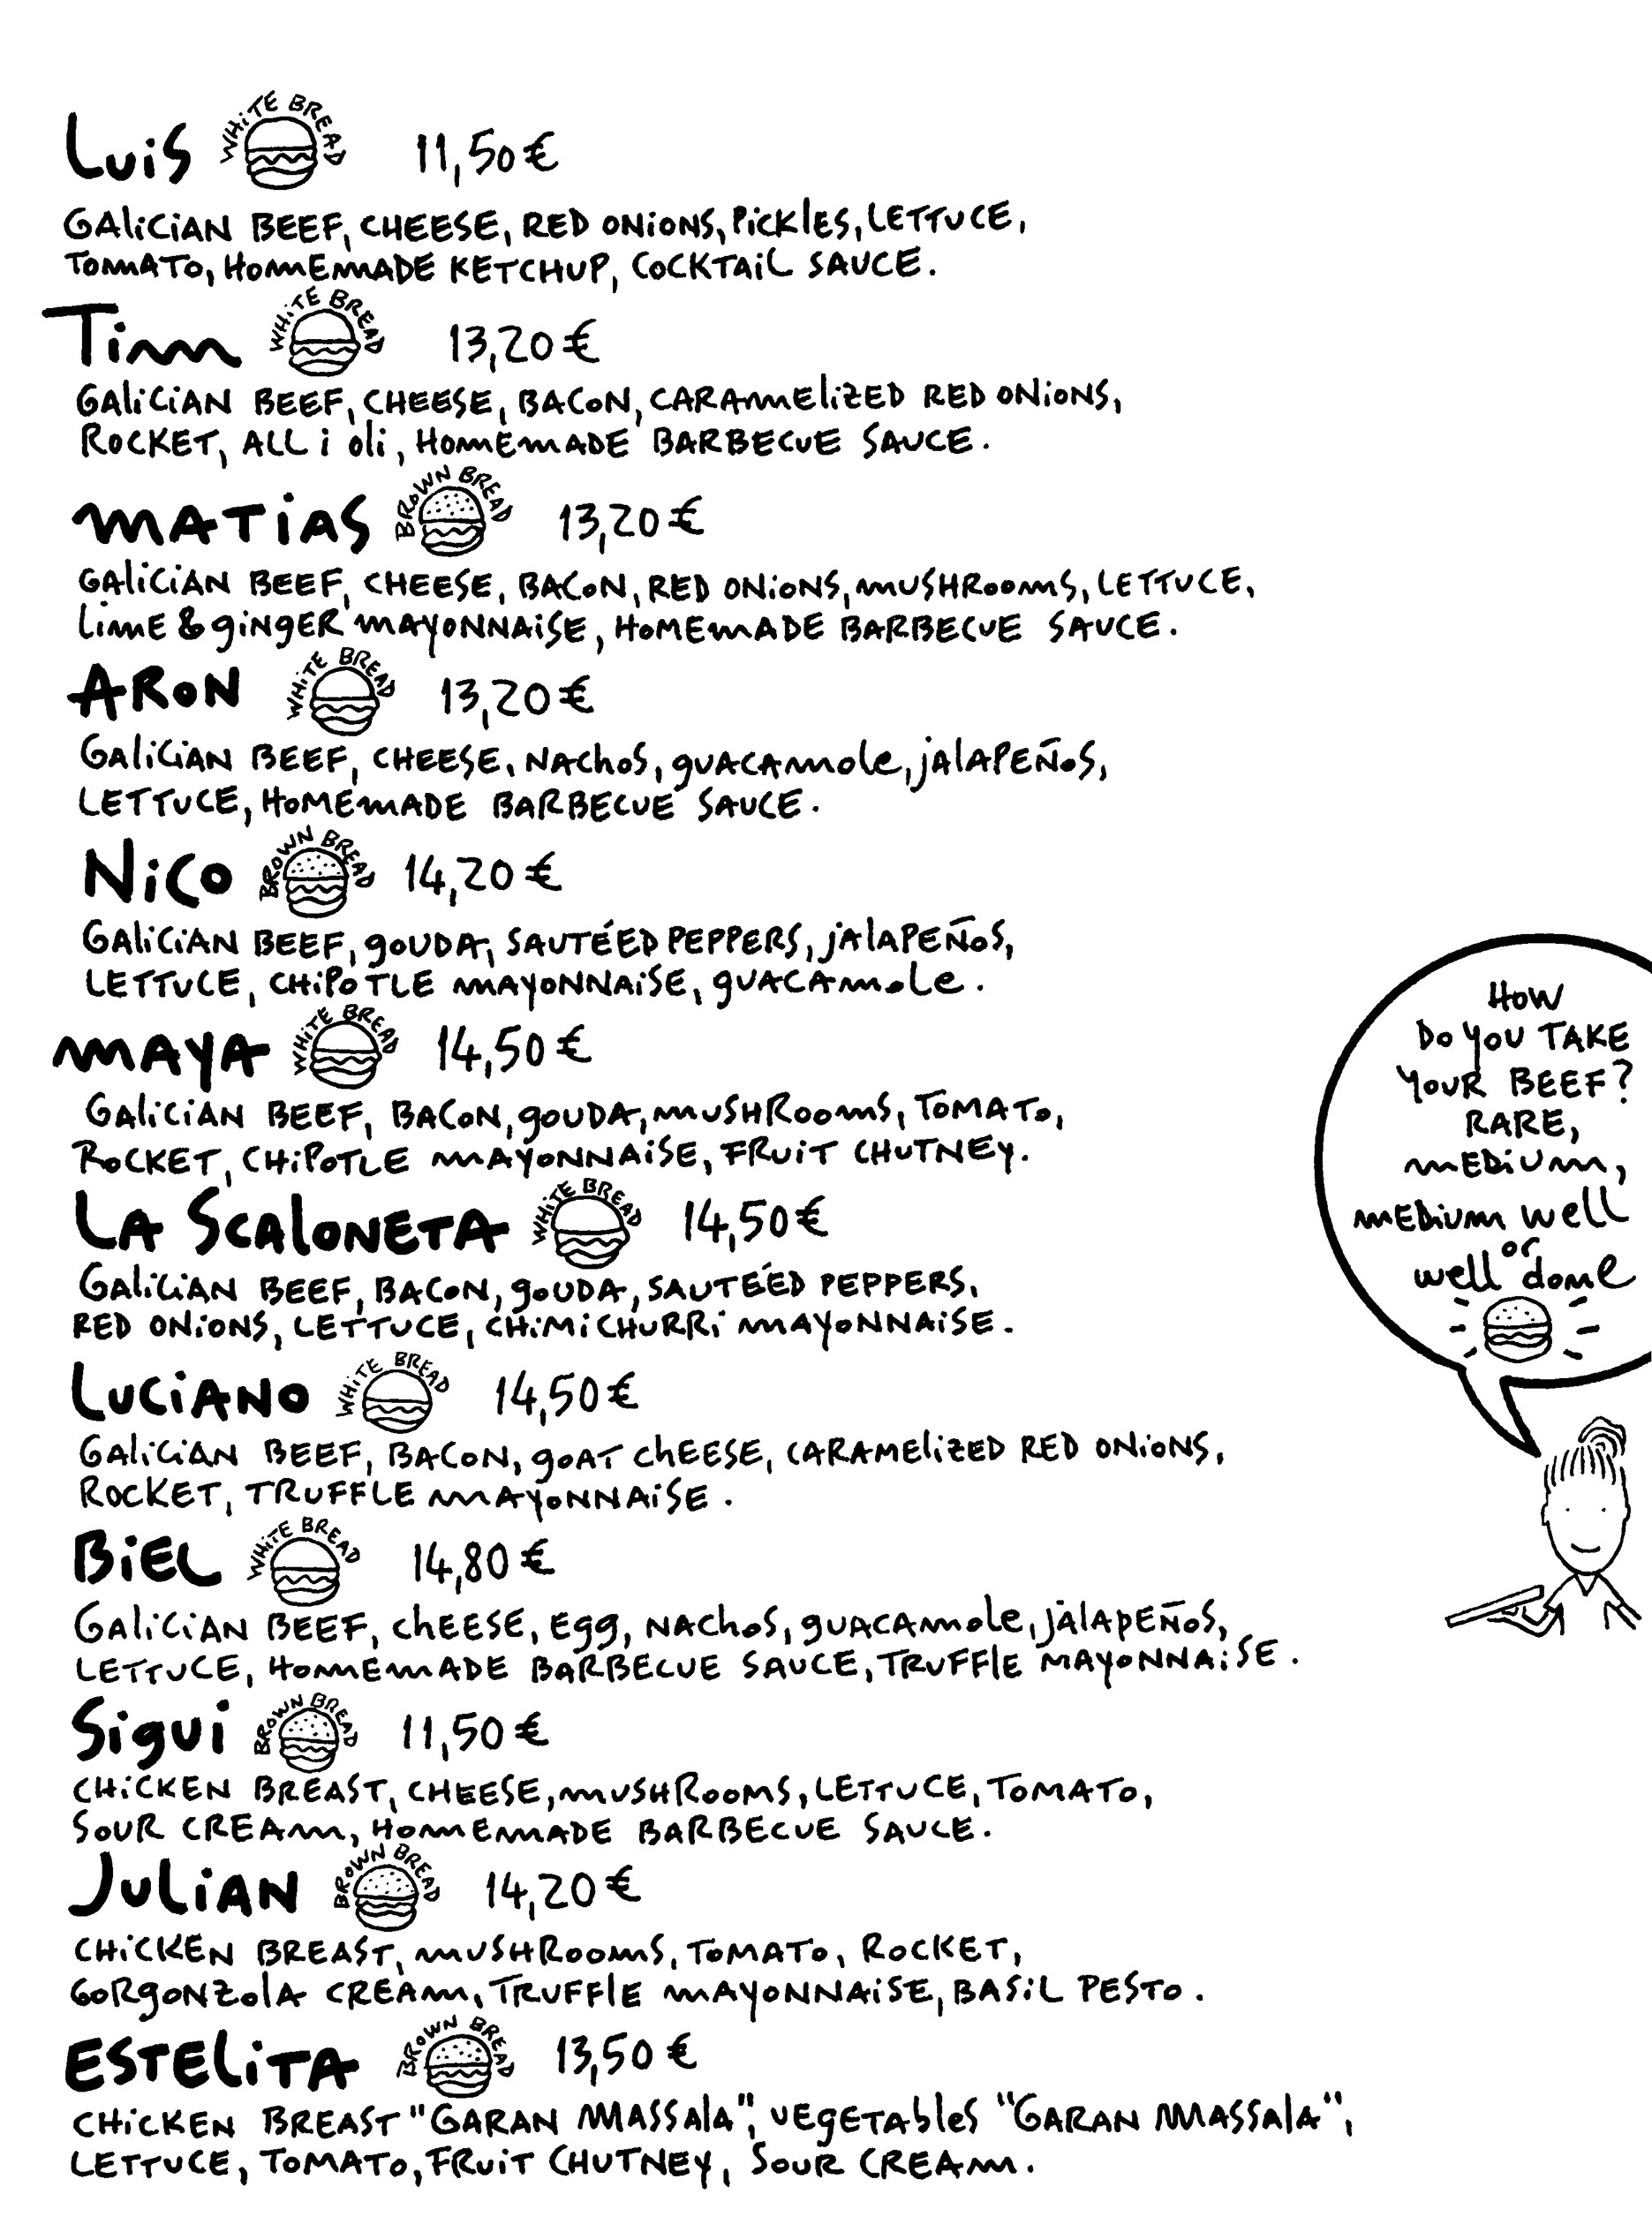 Luis WHITE BREAD 11,50€
GALICIAN BEEF, CHEESE, RED ONIONS, PICKLES, LETTUCE,
TOMATO, HOMEMADE KETCHUP, COCKTAIL SAUCE.
Tim WHITE BREAD 13,20€
GALICIAN BEEF, CHEESE, BACON, CARAMELIZED RED ONIONS,
ROCKET, ALL i oli, HOMEMADE BARBECUE SAUCE.
MATIAS BROWN BREAD 13,20€
GALICIAN BEEF, CHEESE, BACON, RED ONIONS, MUSHROOMS, LETTUCE,
LIME & GINGER MAYONNAISE, HOMEMADE BARBECUE SAUCE.
ARON WHITE BREAD 13,20€
GALICIAN BEEF, CHEESE, NACHOS, GUACAMOLE, JALAPEÑOS,
LETTUCE, HOMEMADE BARBECUE SAUCE.
NICO BROWN BREAD 14,20€
GALICIAN BEEF, GOUDA, SAUTÉED PEPPERS, JALAPEÑOS,
LETTUCE, CHIPOTLE MAYONNAISE, GUACAMOLE.
MAYA WHITE BREAD 14,50€
GALICIAN BEEF, BACON, GOUDA, MUSHROOMS, TOMATO,
ROCKET, CHIPOTLE MAYONNAISE, FRUIT CHUTNEY.
LA SCALONETA WHITE BREAD 14,50€
GALICIAN BEEF, BACON, GOUDA, SAUTÉED PEPPERS,
RED ONIONS, LETTUCE, CHIMICHURRI MAYONNAISE.
LUCIANO WHITE BREAD 14,50€
GALICIAN BEEF, BACON, GOAT CHEESE, CARAMELIZED RED ONIONS,
ROCKET, TRUFFLE MAYONNAISE.
BIEL WHITE BREAD 14,80€
GALICIAN BEEF, CHEESE, EGG, NACHOS, GUACAMOLE, JALAPEÑOS,
LETTUCE, HOMEMADE BARBECUE SAUCE, TRUFFLE MAYONNAISE.
Sigui BROWN BREAD 11,50€
CHICKEN BREAST, CHEESE, MUSHROOMS, LETTUCE, TOMATO,
SOUR CREAM, HOMEMADE BARBECUE SAUCE.
JULIAN BROWN BREAD 14,20€
CHICKEN BREAST, MUSHROOMS, TOMATO, ROCKET,
GORGONZOLA CREAM, TRUFFLE MAYONNAISE, BASIL PESTO.
ESTELITA BROWN BREAD 13,50€
CHICKEN BREAST "GARAN MASSALA", VEGETABLES "GARAN MASSALA",
LETTUCE, TOMATO, FRUIT CHUTNEY, SOUR CREAM.
HOW
DO YOU TAKE
YOUR BEEF?
RARE,
MEDIUM,
MEDIUM WELL
or
well done